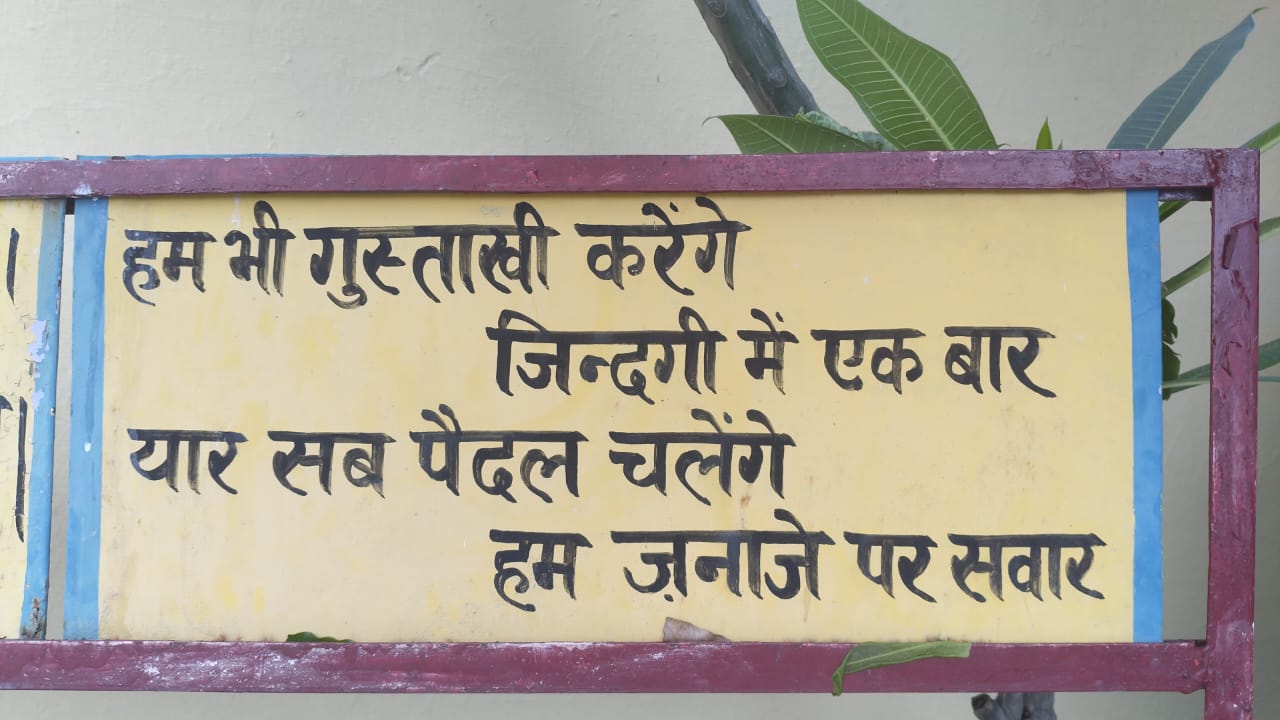 हम भी गुस्ताखी करेंगे
जिन्दगी में एक बार
यार सब पैदल चलेंगे
हम ज़नाजे पर सवार